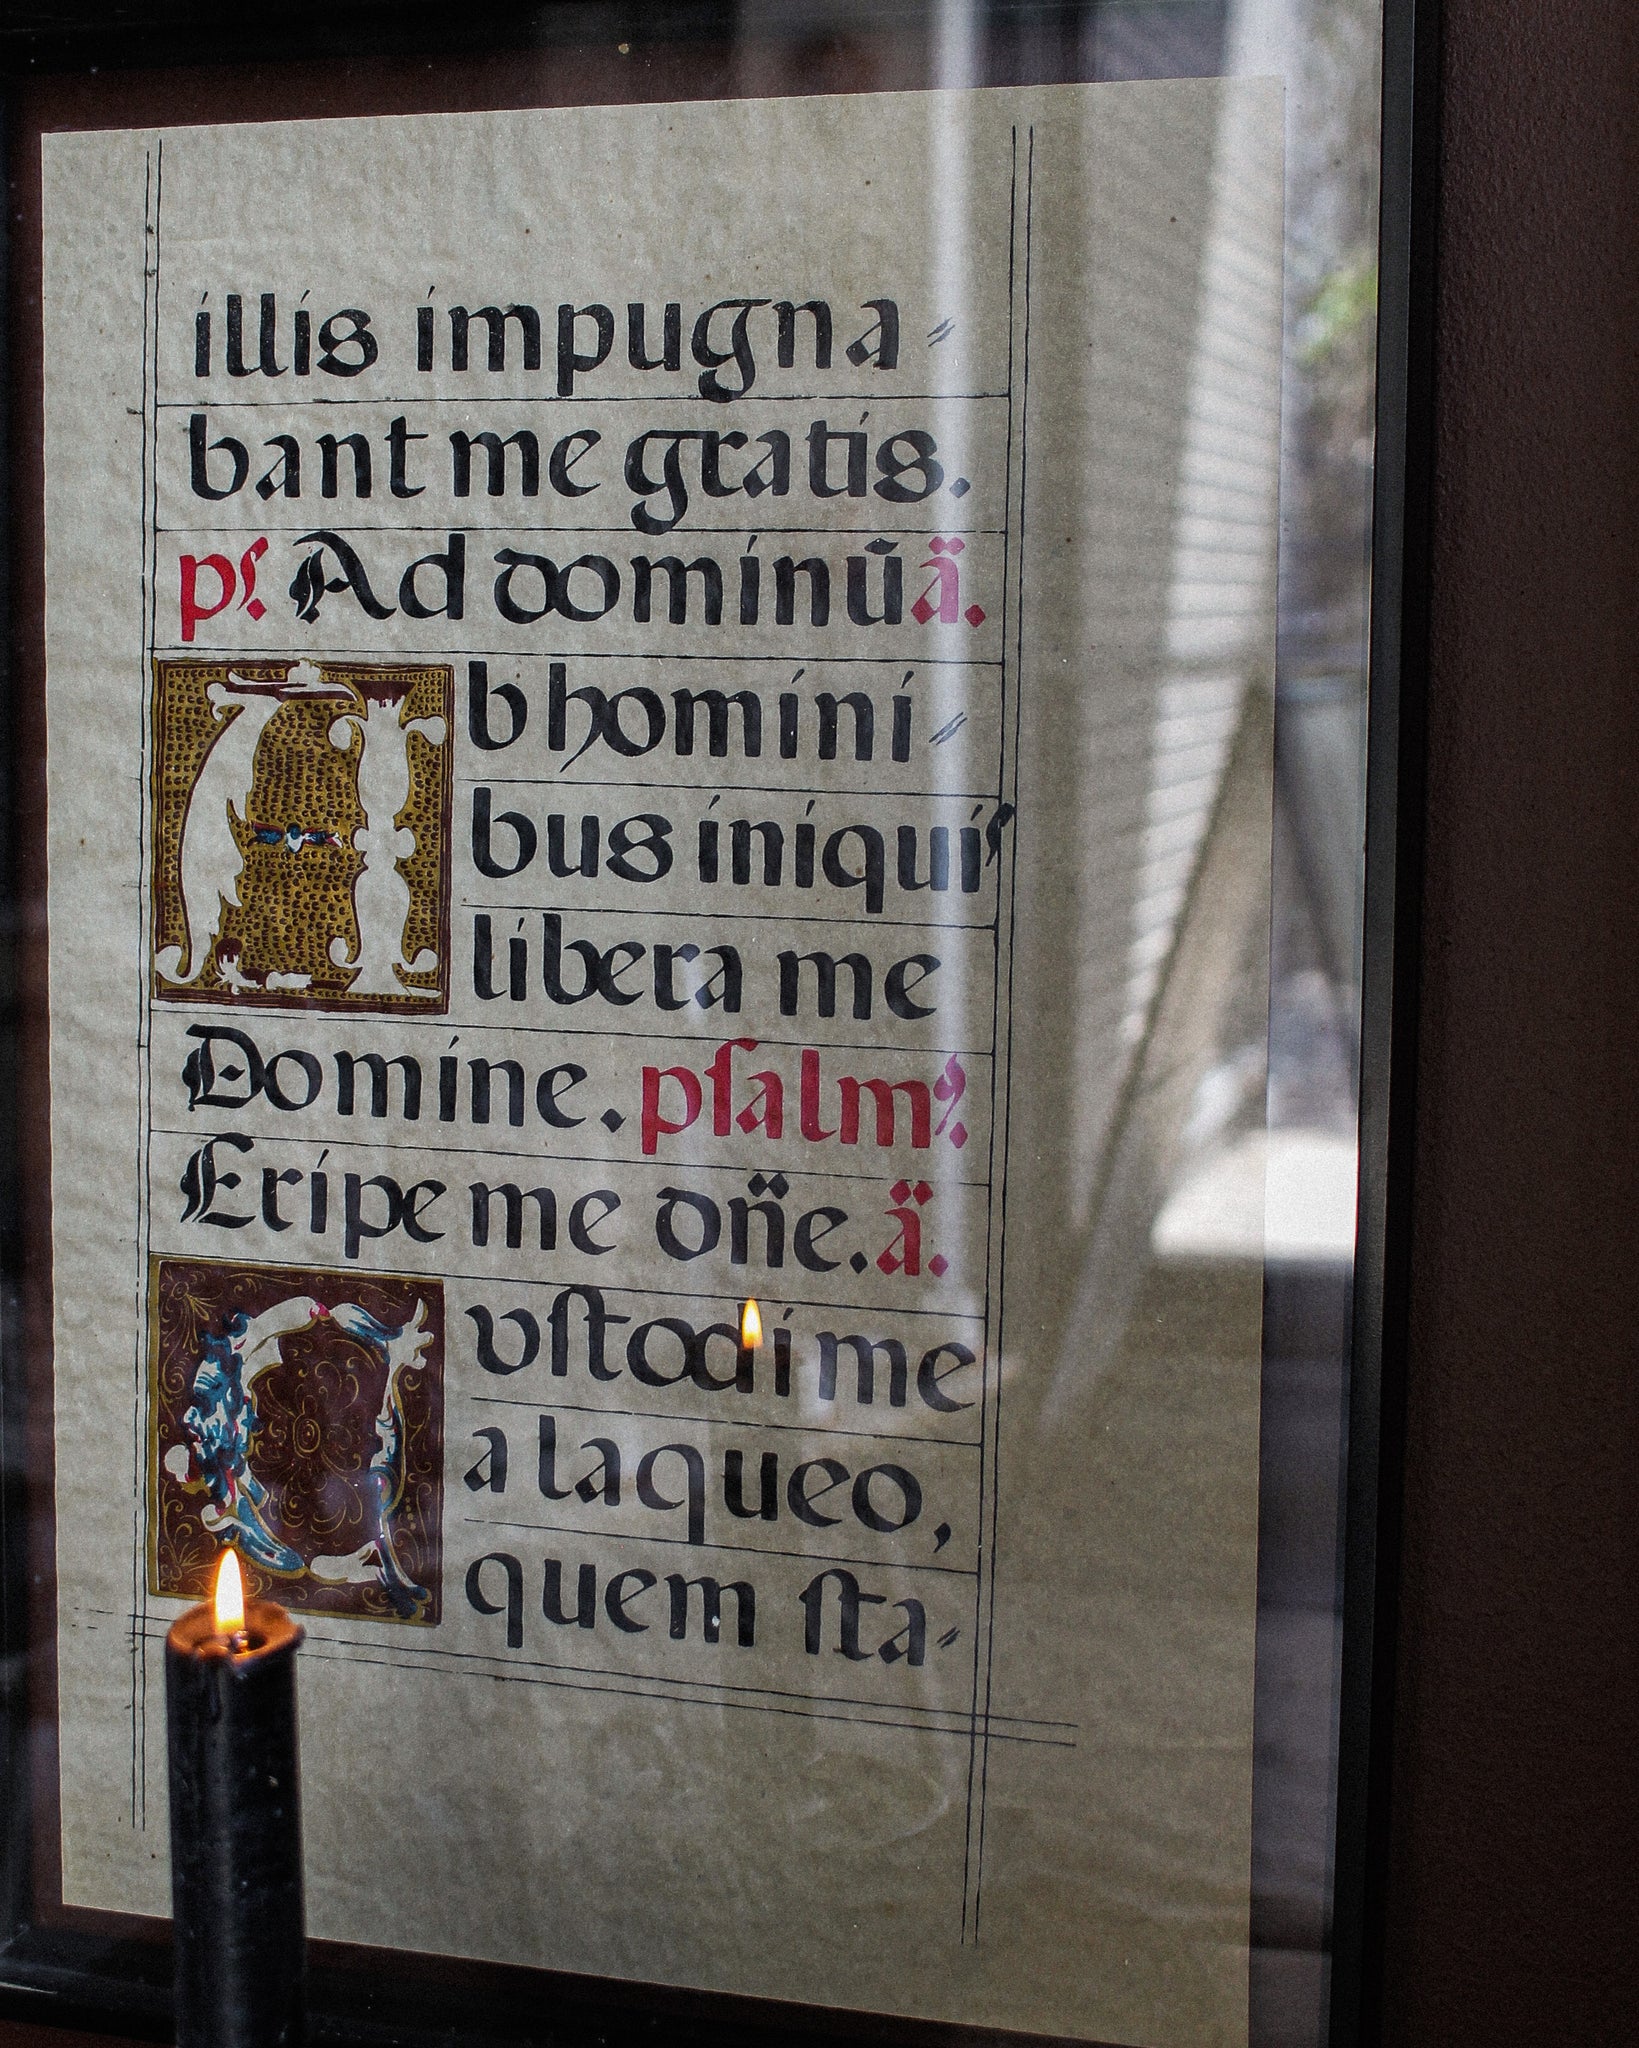 illis impugna⸗
bant me gratis.
pſ. Ad dominūä.
Ab homini⸗
bus iniquiſ
libera me
Domine. pſalmꝰ.
Eripe me dn̈e. ä.
Cuſtodi me
a laqueo,
quem ſta⸗